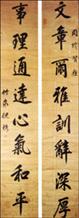 文章爾雅訓辭深厚
事理通達心氣和平